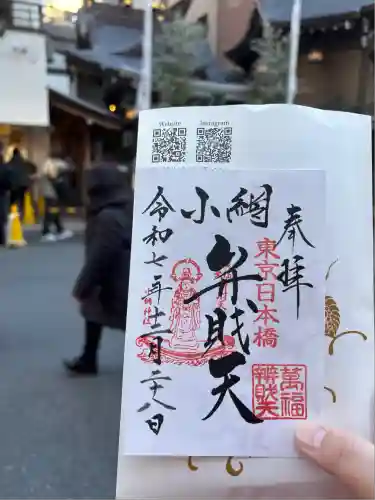 Website
Instagram
奉拝
東京日本橋
小網
弁財天
令和七年十二月二十八日
萬福
辨財天